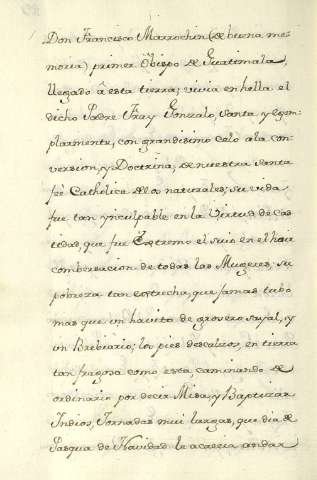 Don Francisco Marrochin (de buena me=
moria) primer Obispo de Guatemala,
llegado â esta tierra; vivia en hella el
dicho Padre Fray Gonzalo, santa, y egem=
plarmente, con grandisimo celo a la con=
version, y Doctrina, de nuestra santa
feè Catholica de los naturales; su vida
fue tan ynculpable en la Virtud de Cas
tidad, que fue Estremo el suio en el huir
combersacion de todas las Mugeres, su
pobreza tan estrecha, que jamas tubo
mas que un havito de grosero sayal, y
un Brebiario; los pies descalzos, en tierra
tan fragosa como esta, caminando de
ordinario por decir Misa, y Baptizar
Indios, Jornadas mui largas, que dia de
Pasqua de Navidad le acaecia andar